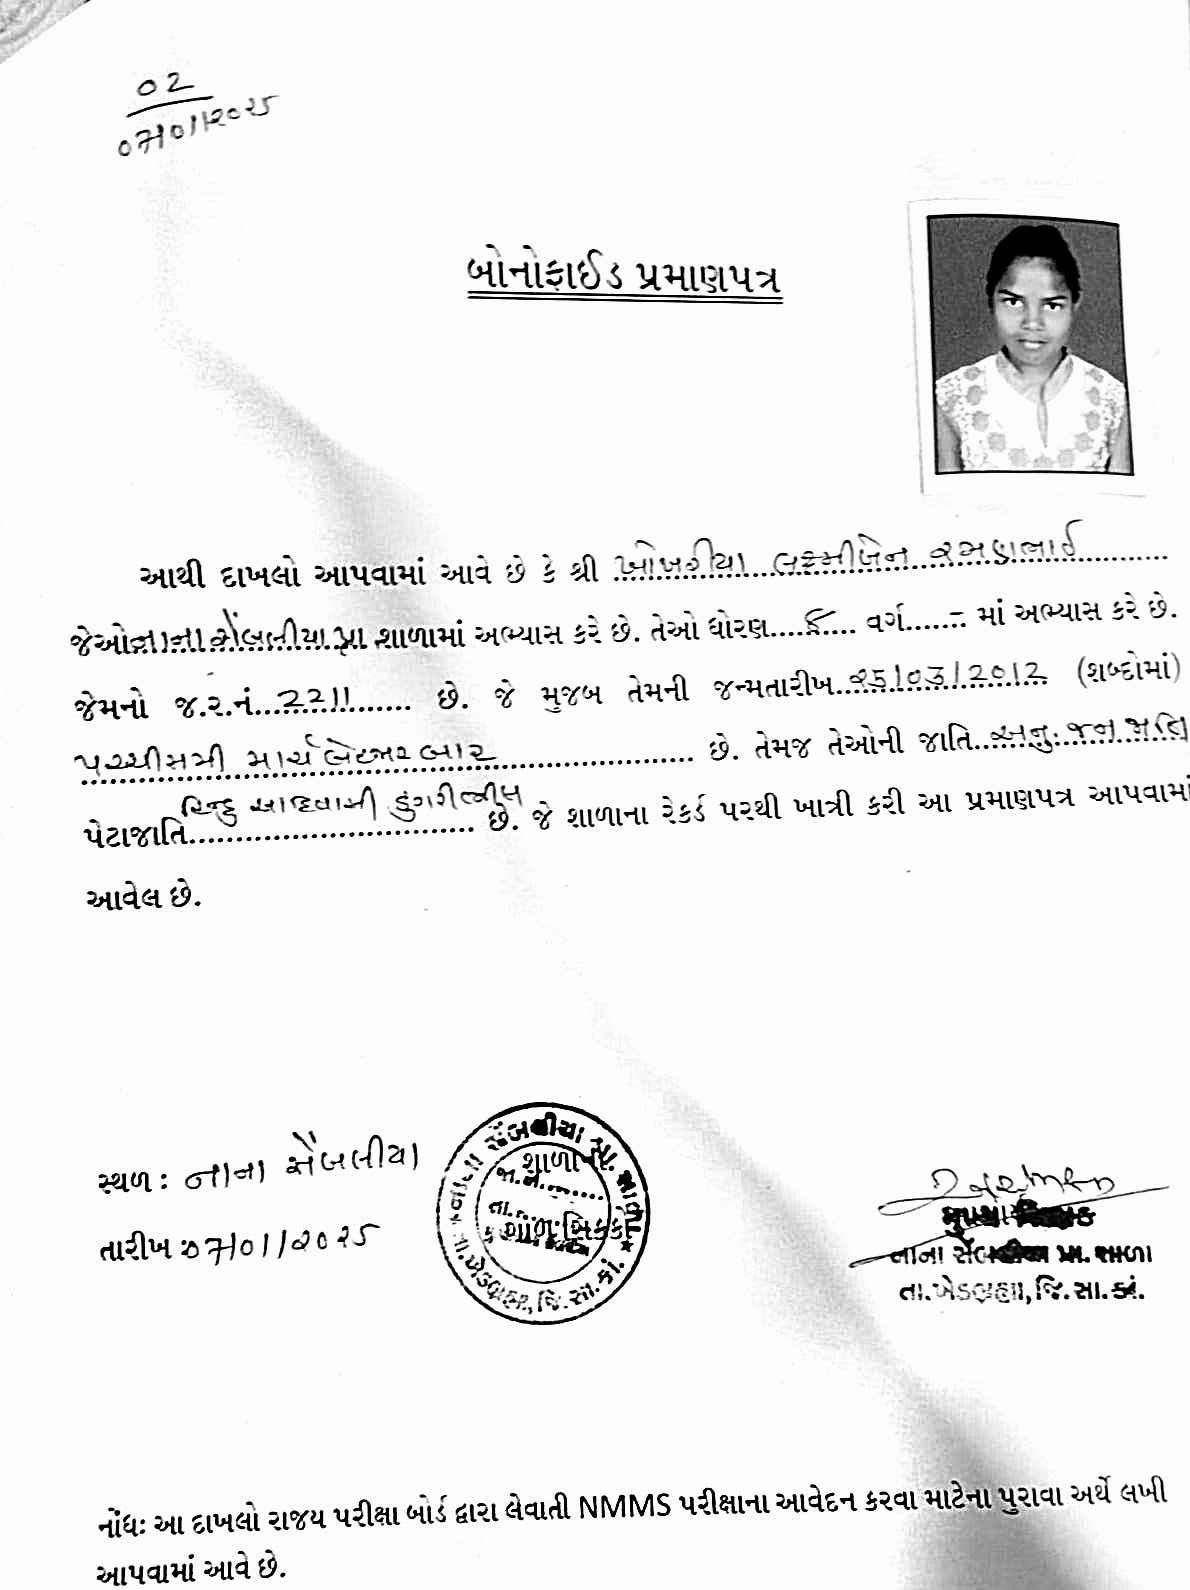 02
07/01/2025
બોનોફાઈડ પ્રમાણપત્ર
આથી દાખલો આપવામાં આવે છે કે શ્રી ખોખરીયા લક્ષ્મીબેન રમણભાઈ
જેઓ નાના સેંબલીયા પ્રા શાળામાં અભ્યાસ કરે છે. તેઓ ધોરણ....૮.... વર્ગ.......– માં અભ્યાસ કરે છે.
જેમનો જ.ર.નં....2211....... છે. જે મુજબ તેમની જન્મતારીખ..૨૬/૦૩/2012 (શબ્દોમાં)
માર્ચ બેહજાર બાર છે. તેમજ તેઓની જાતિ...અનુ.જન જાતિ
પેટાજાતિ હિન્દુ આદિવાસી ડુંગરીભીલ છે. જે શાળાના રેકર્ડ પરથી ખાત્રી કરી આ પ્રમાણપત્ર આપવામાં
આવેલ છે.
સ્થળ : નાના સેંબલીયા
તારીખ : 07/01/2025
નાના સેંબલીયા પ્રા. શાળા
જા.નં.
તા.
શાળાનો સિક્કો
તા.ખેડબ્રહ્મા, જિ.સા.કાં.
નાના સેંબલીયા પ્રા. શાળા
તા.ખેડબ્રહ્મા,જિ.સા.કાં.
નોંધઃ આ દાખલો રાજય પરીક્ષા બોર્ડ દ્વારા લેવાતી NMMS પરીક્ષાના આવેદન કરવા માટેના પુરાવા અર્થે લખી
આપવામાં આવે છે.